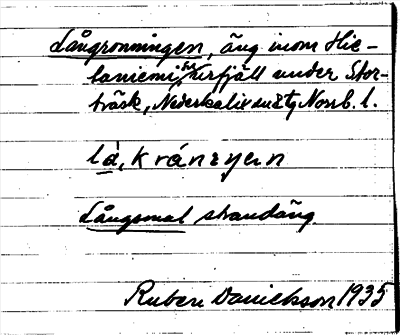 Långronningen, äng inom Hie-
laniemi kirfjäll under Stor-
träsk, Nederkalix Norrb. l.
Långsmal strandäng.
Ruben Danielsson 1935